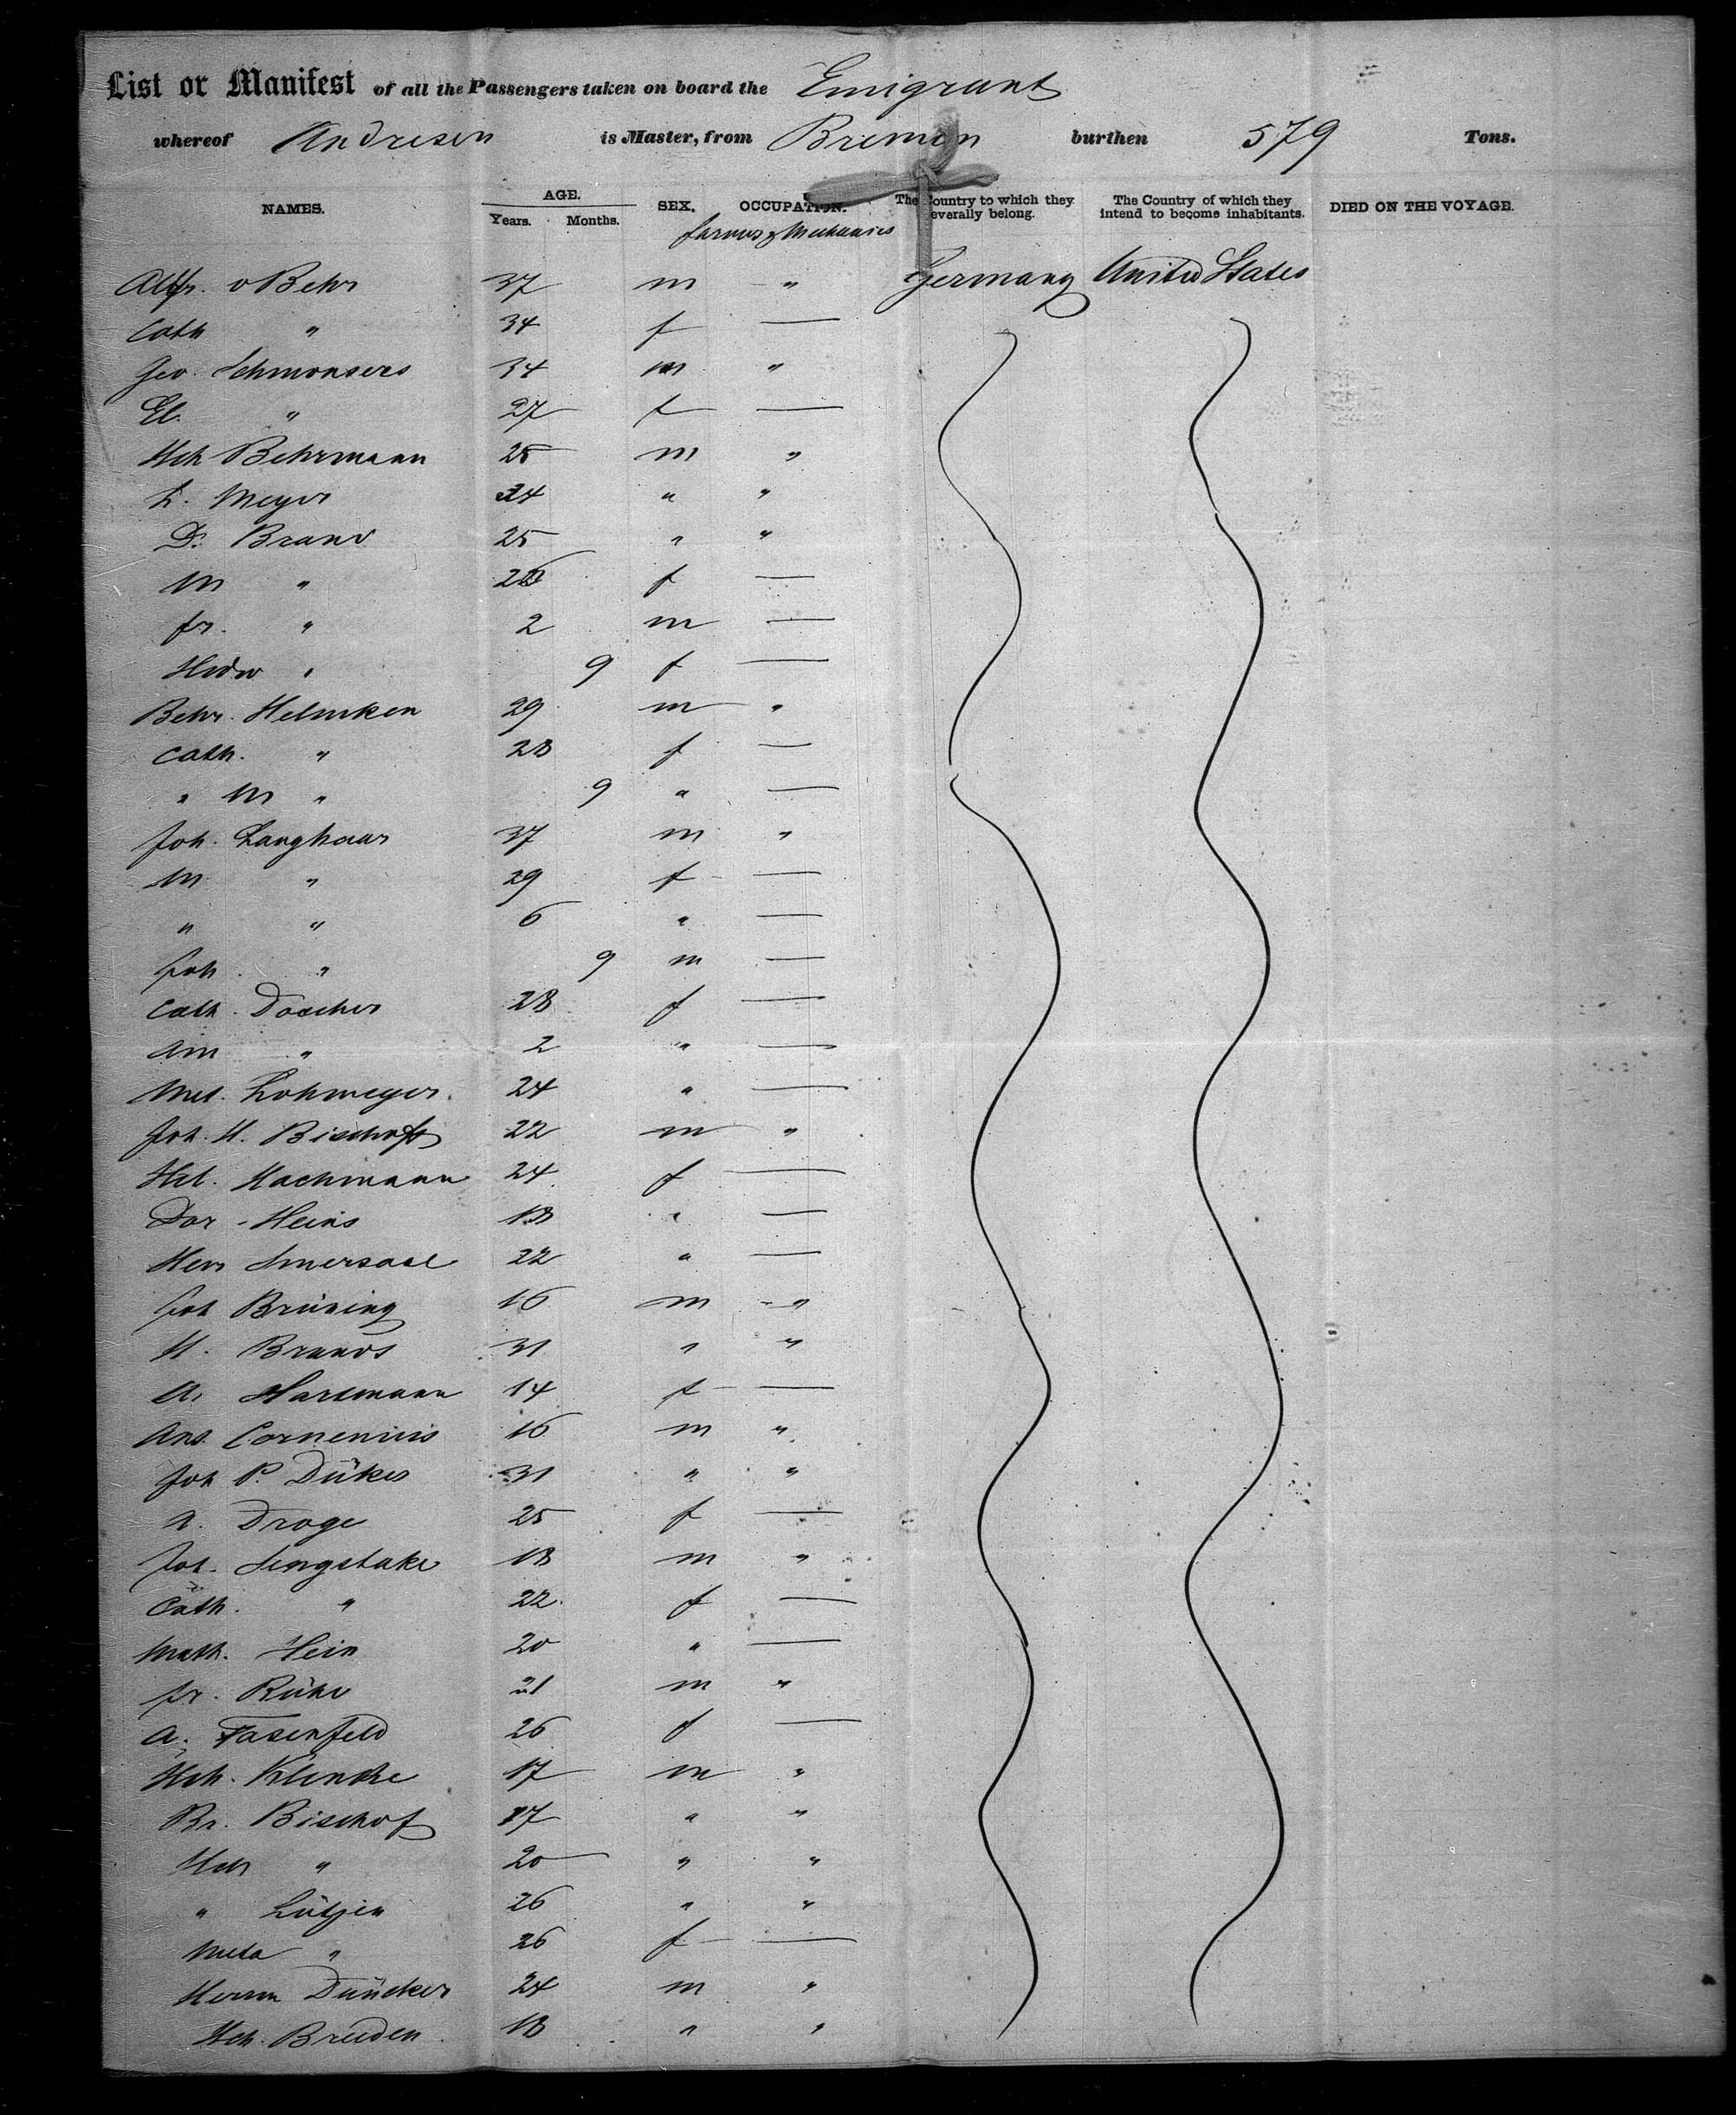 List or Manifest of all the Passengers taken on board the Emigrant
whereof Andresen is Master, from Bremen burthen 579 Tons.
NAMES. AGE. Years. Months. SEX. OCCUPATION. The Country to which they severally belong. The Country of which they intend to become inhabitants. DIED ON THE VOYAGE.
farmers & Mechanics
v Behr 37 m " Germany United States
Cath " 34 f —
Geo. Schmonsees 34 m "
El. " 27 f —
Hch Behrmann 25 m "
L. Meyer 24 " "
D. Brand 25 " "
M " f —
fr. " 2 m —
Hedw " 9 f —
Behr. Helmken 29 m "
Cath. " 28 f —
" M " 9 " —
Joh. Langhaar 37 m "
M " 29 f —
" " 6 " —
Joh. " 9 m —
Cath. Doscher 28 f —
Am " 2 " —
Met. Lohmeyer 24 " —
Joh. H. Bischoff 22 m "
Hel. Hachmann 24 f —
Dor. Heins 18 " —
22 " —
Joh Brüning 16 m "
H. Brands 31 " "
A. Hartmann 14 f —
And. Cornenius 16 m "
Joh P. Dükes 31 " "
A. Droge 25 f —
Joh. Sengstake 18 m "
Cath. " 22 f —
Math. Hein 20 " —
fr. 21 m "
A. Fasenfeld 26 f —
Hch. Klencke 17 m "
Br. Bischof 17 " "
Hch " 20 " "
" Lütjen 26 " "
Meta " 26 f —
Herm Düncker 24 m "
Hch. Breden 18 " "